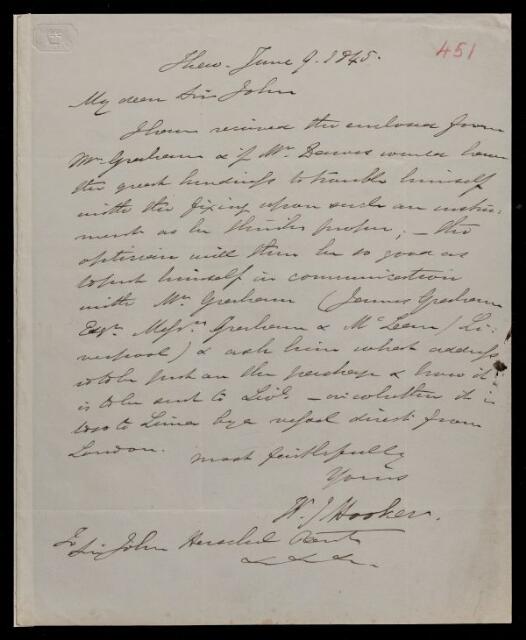 451
Kew. June 9. 1845.
My dear Sir John
I have received the enclosed from
Mr. Graham & if Mr. Dawes would have
the great kindness to trouble himself
with the fixing upon such an instru-
ment as he thinks proper; – the
optician will then be so good as
to put himself in communication
with Mr. Graham (James Graham
Esqr. Messrs. Graham & McLean / Li-
verpool) & ask him what address
is to be put on the package & how it
is to be sent to Livl. – or whether it is
to Lima by a vessel direct from
London.
most faithfully
Yours
W. J Hooker.
To
Sir John Herschel Bart
&c &c &c.